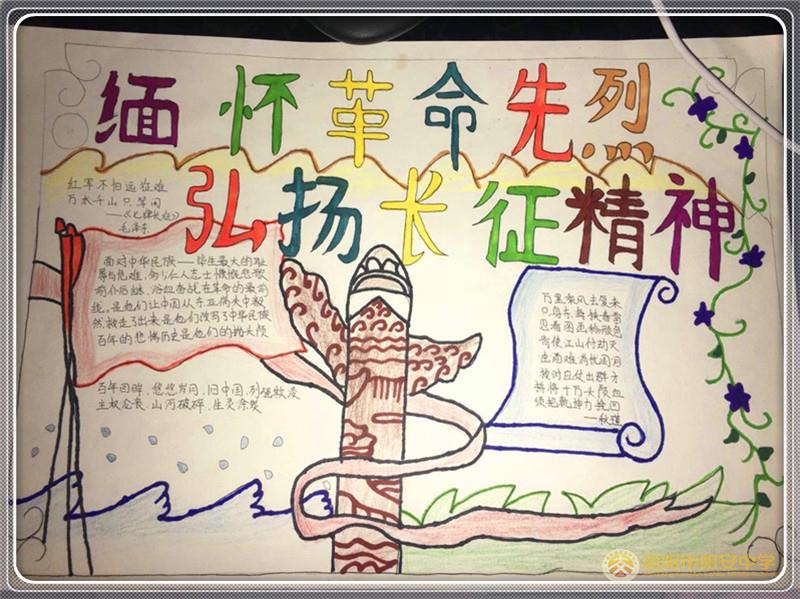 缅怀革命先烈
弘扬长征精神
红军不怕远征难
万水千山只等闲
——《七律长征》
毛泽东
面对中华民族——毕生最大的耻
辱与危难,多少仁人志士慷慨悲歌
前仆后继、浴血奋战在革命的最前
线。是他们让中国从东亚病夫中毅
然救走了出来,是他们改写了中华民族
百年的悲惨历史是他们的抛头颅
百年回眸,悠悠岁月,旧中国,列强欺凌
主权沦丧,山河破碎,生灵涂炭
万里乘风去复来
只身东海挟春雷
忍看图画移颜色
肯使江山付劫灰
浊酒难
救时应仗出群才
拼将十万头颅血
须把乾坤力挽回
——秋瑾